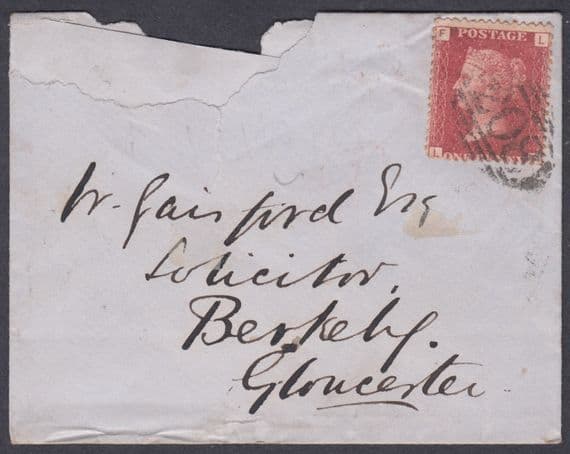 F POSTAGE L
L ONE PENNY F
W. Gainsford Esq
Solicitor,
Berkeley.
Gloucester